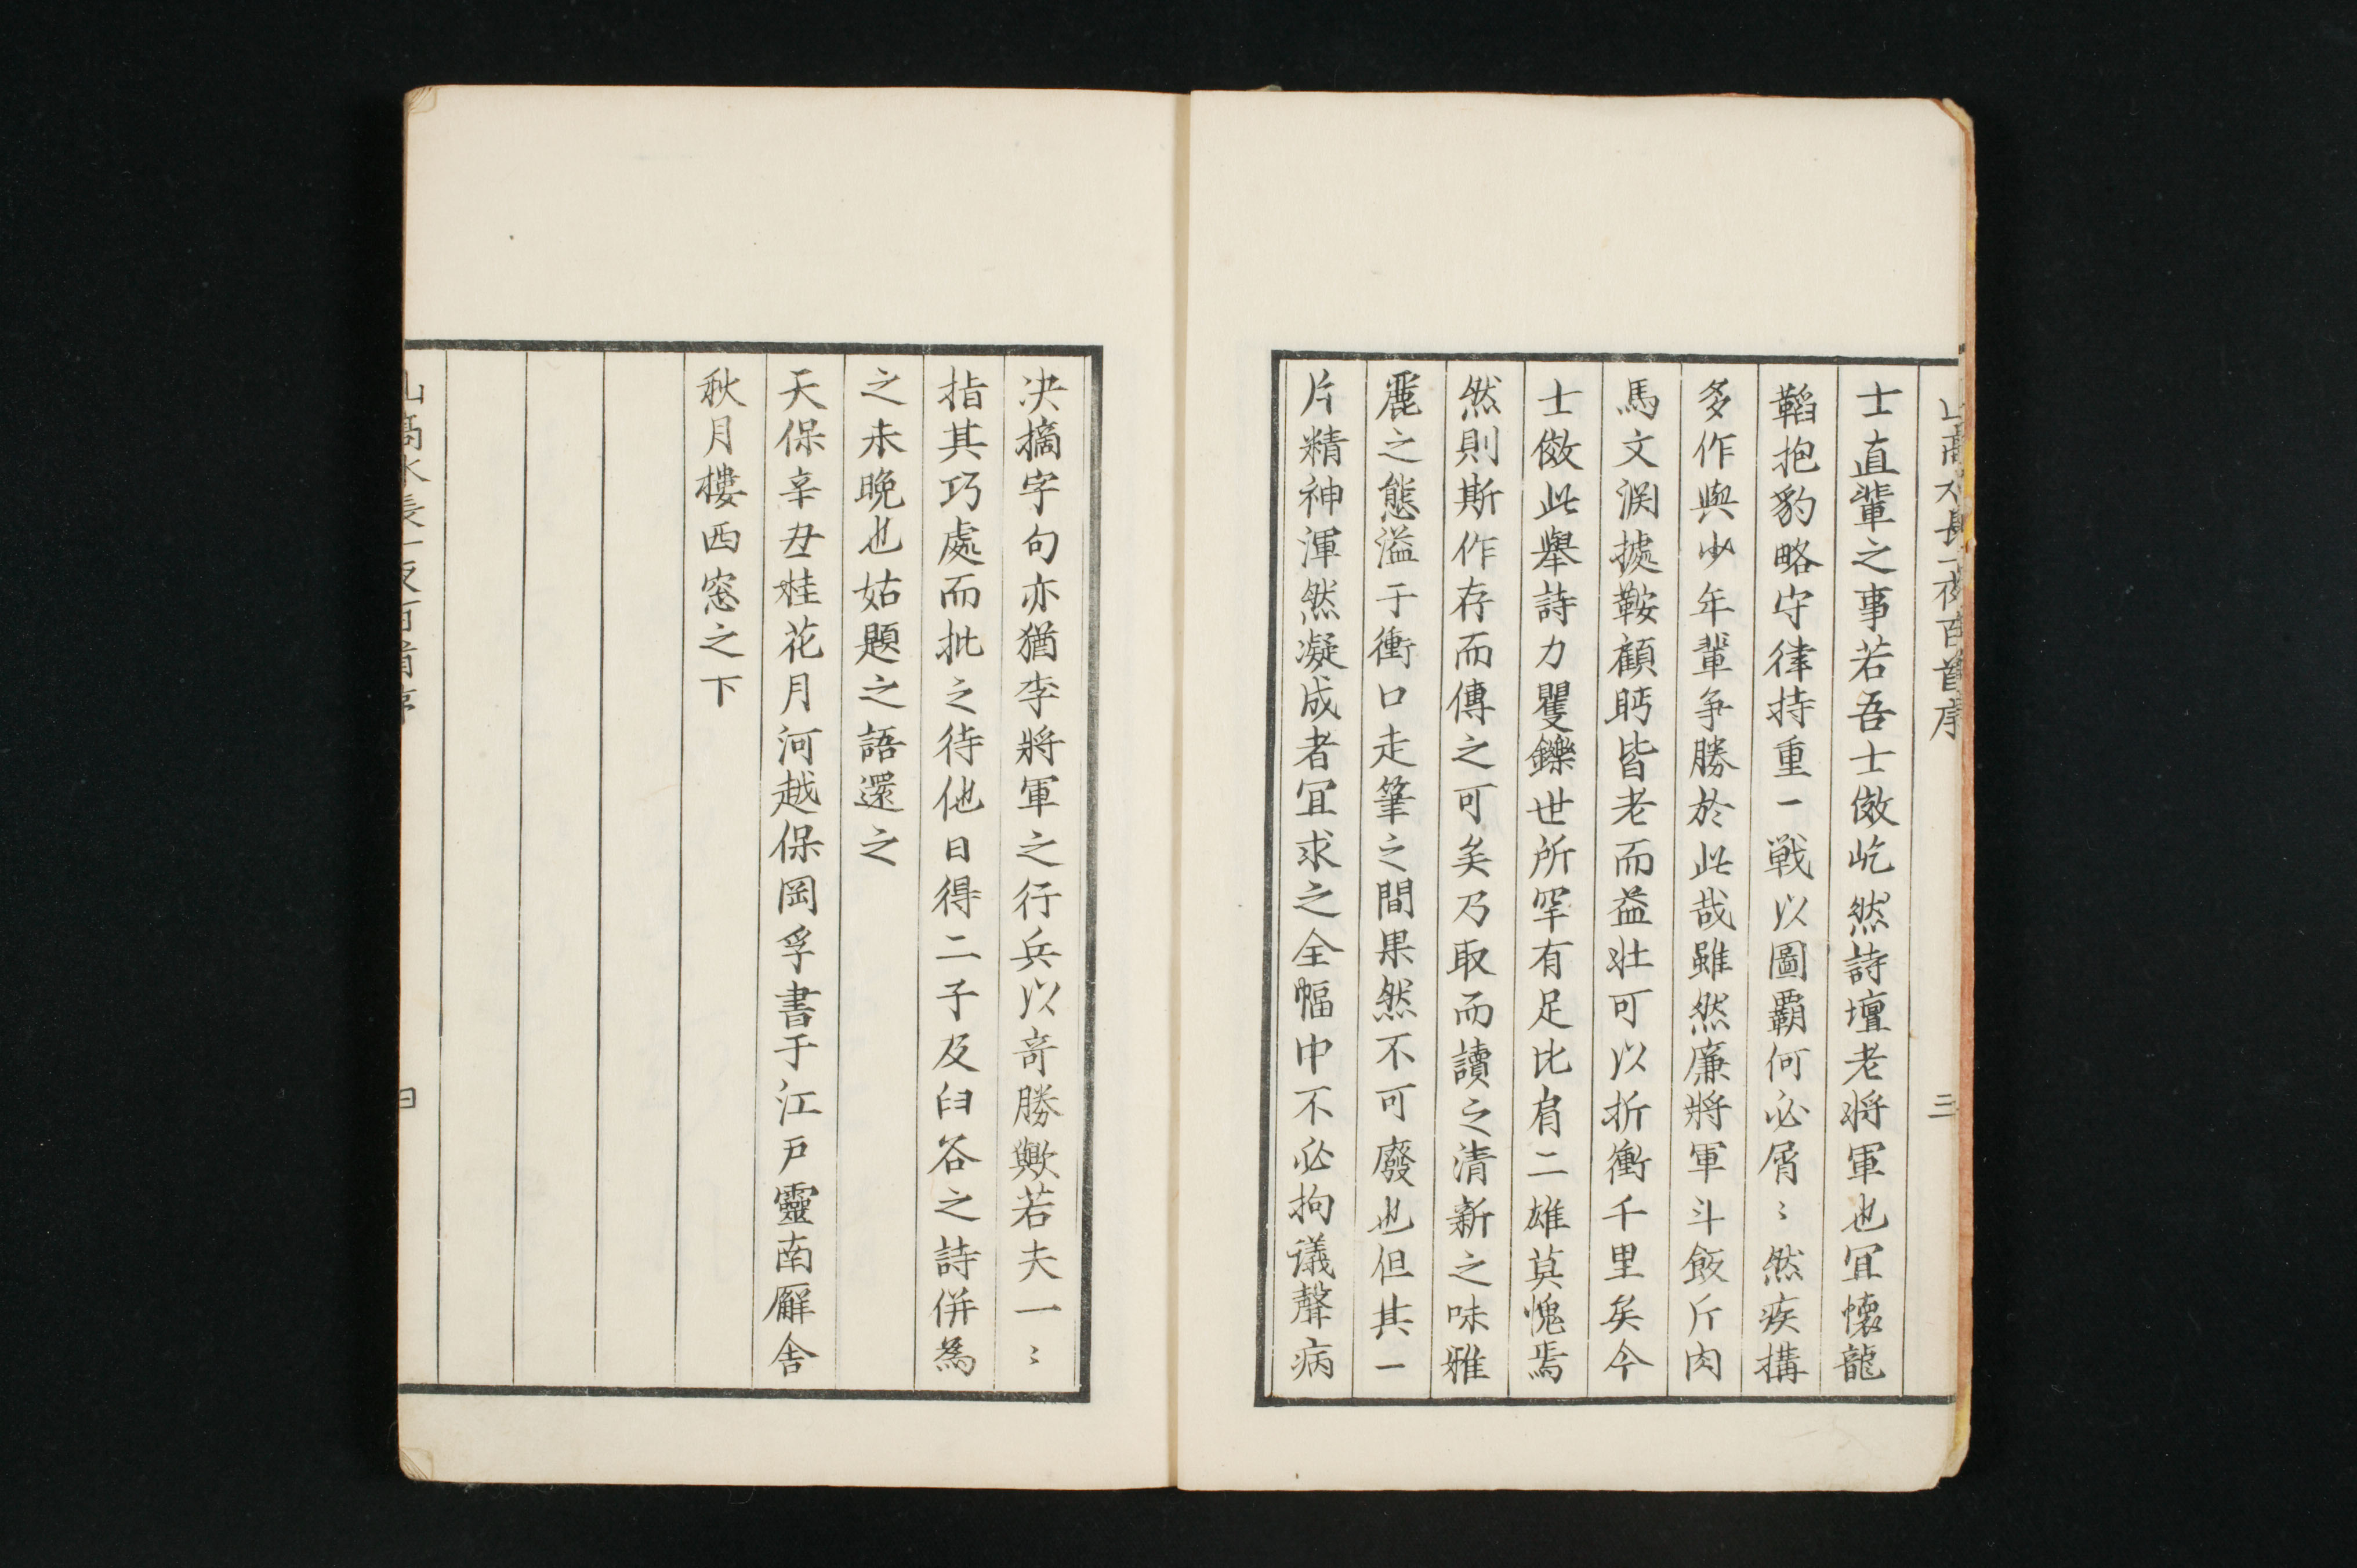 山高水長一夜百首序 三
士直輩之事若吾士倣屹然詩壇老將軍也冝懐龍
韜抱豹略守律持重一戦以圖覇何必屑〻然疾搆
多作與少年輩爭勝於此哉雖然廉將軍斗飯斤肉
馬文淵據鞍顧眄皆老而益壮可以折衝千里矣今
士倣此舉詩力矍鑠世所罕有足比肩二雄莫愧焉
然則斯作存而傳之可矣乃取而讀之清新之味雅
麗之態溢于衝口走筆之間果然不可廢也但其一
片精神渾然凝成者冝求之全幅中不必拘议聲病
决摘字句亦猶李將軍之行兵以竒勝歟若夫一〻
指其巧處而批之待他日得二子及臼谷之詩併為
之未晚也姑題之語還之
天保辛丑桂花月河越保岡孚書于江戸靈南廨舎
秋月樓西窓之下
山高水長一夜百首序 四